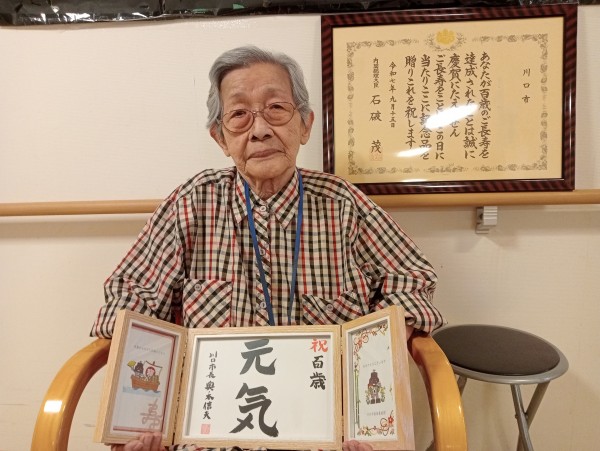 川口市
あなたが百歳のご長寿を
達成されたことは誠に
慶賀にたえません
ご長寿をことほぐこの日に
当たりここに記念品を
贈りこれを祝します
令和七年九月十五日
内閣総理大臣 石破 茂
祝 百歳
元気
川口市長 奥ノ木信夫
寿